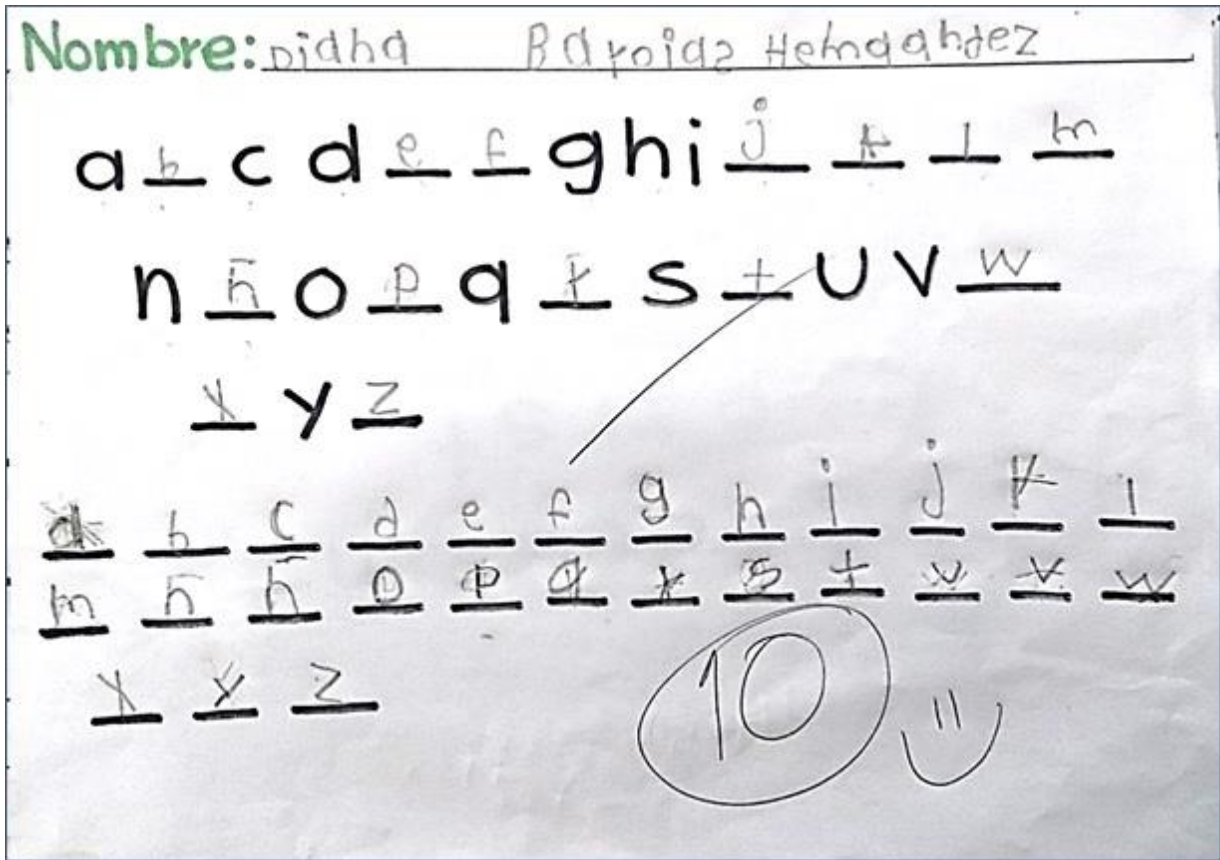 Nombre: Diana Hernandez
a b c d e f g h i j k l m
n ñ o p q r s t u v w
x y z
a b c d e f g h i j k l
m n ñ o p q r s t u v w
x y z
10